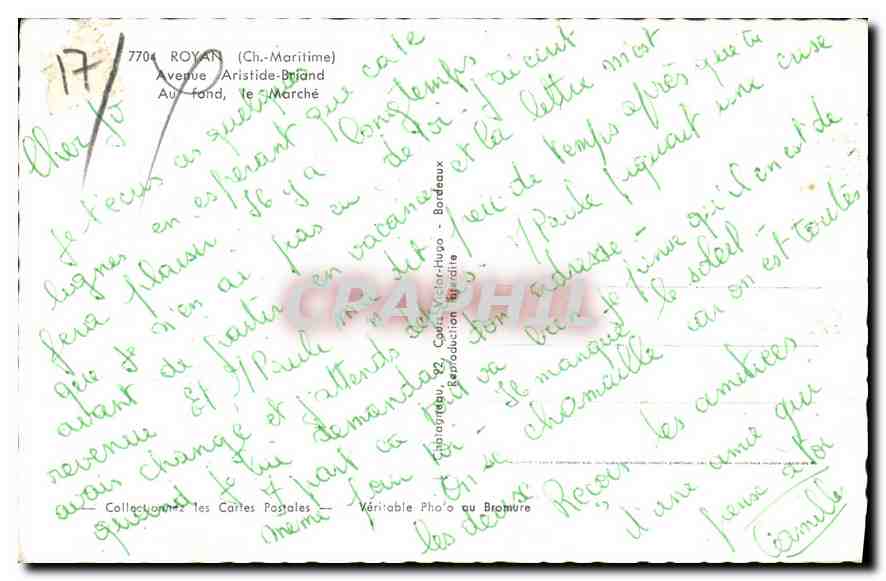 17
7704 ROYAN (Ch.-Maritime)
Avenue Aristide-Briand
Au fond, le Marché
Cher Jo
Je t'ecris ces quelques
lignes en esperant que cate
fera plaisir. Il y a longtemps
que je n'en ai pas eu de toi. J'ai ecrit
avant de partir en vacances et la lettre m'est
revenue. Et M/Paule m'a dit peu de temps après que tu
avais changé et j'attends M/Paule une
quand je lui demandai ton adresse -
à part ca tout va bien. Je pense qu'il en est de
même pour toi. Il manque le soleil -
On se chamaille car on est toutes
les deux. Recois les amitiées
d'une amie qui
pense à toi
Camille
Chatagneau, 92, Cours Victor-Hugo - Bordeaux
Reproduction Interdite
CPAPHIL
— Collectionnez les Cartes Postales — Véritable Photo au Bromure